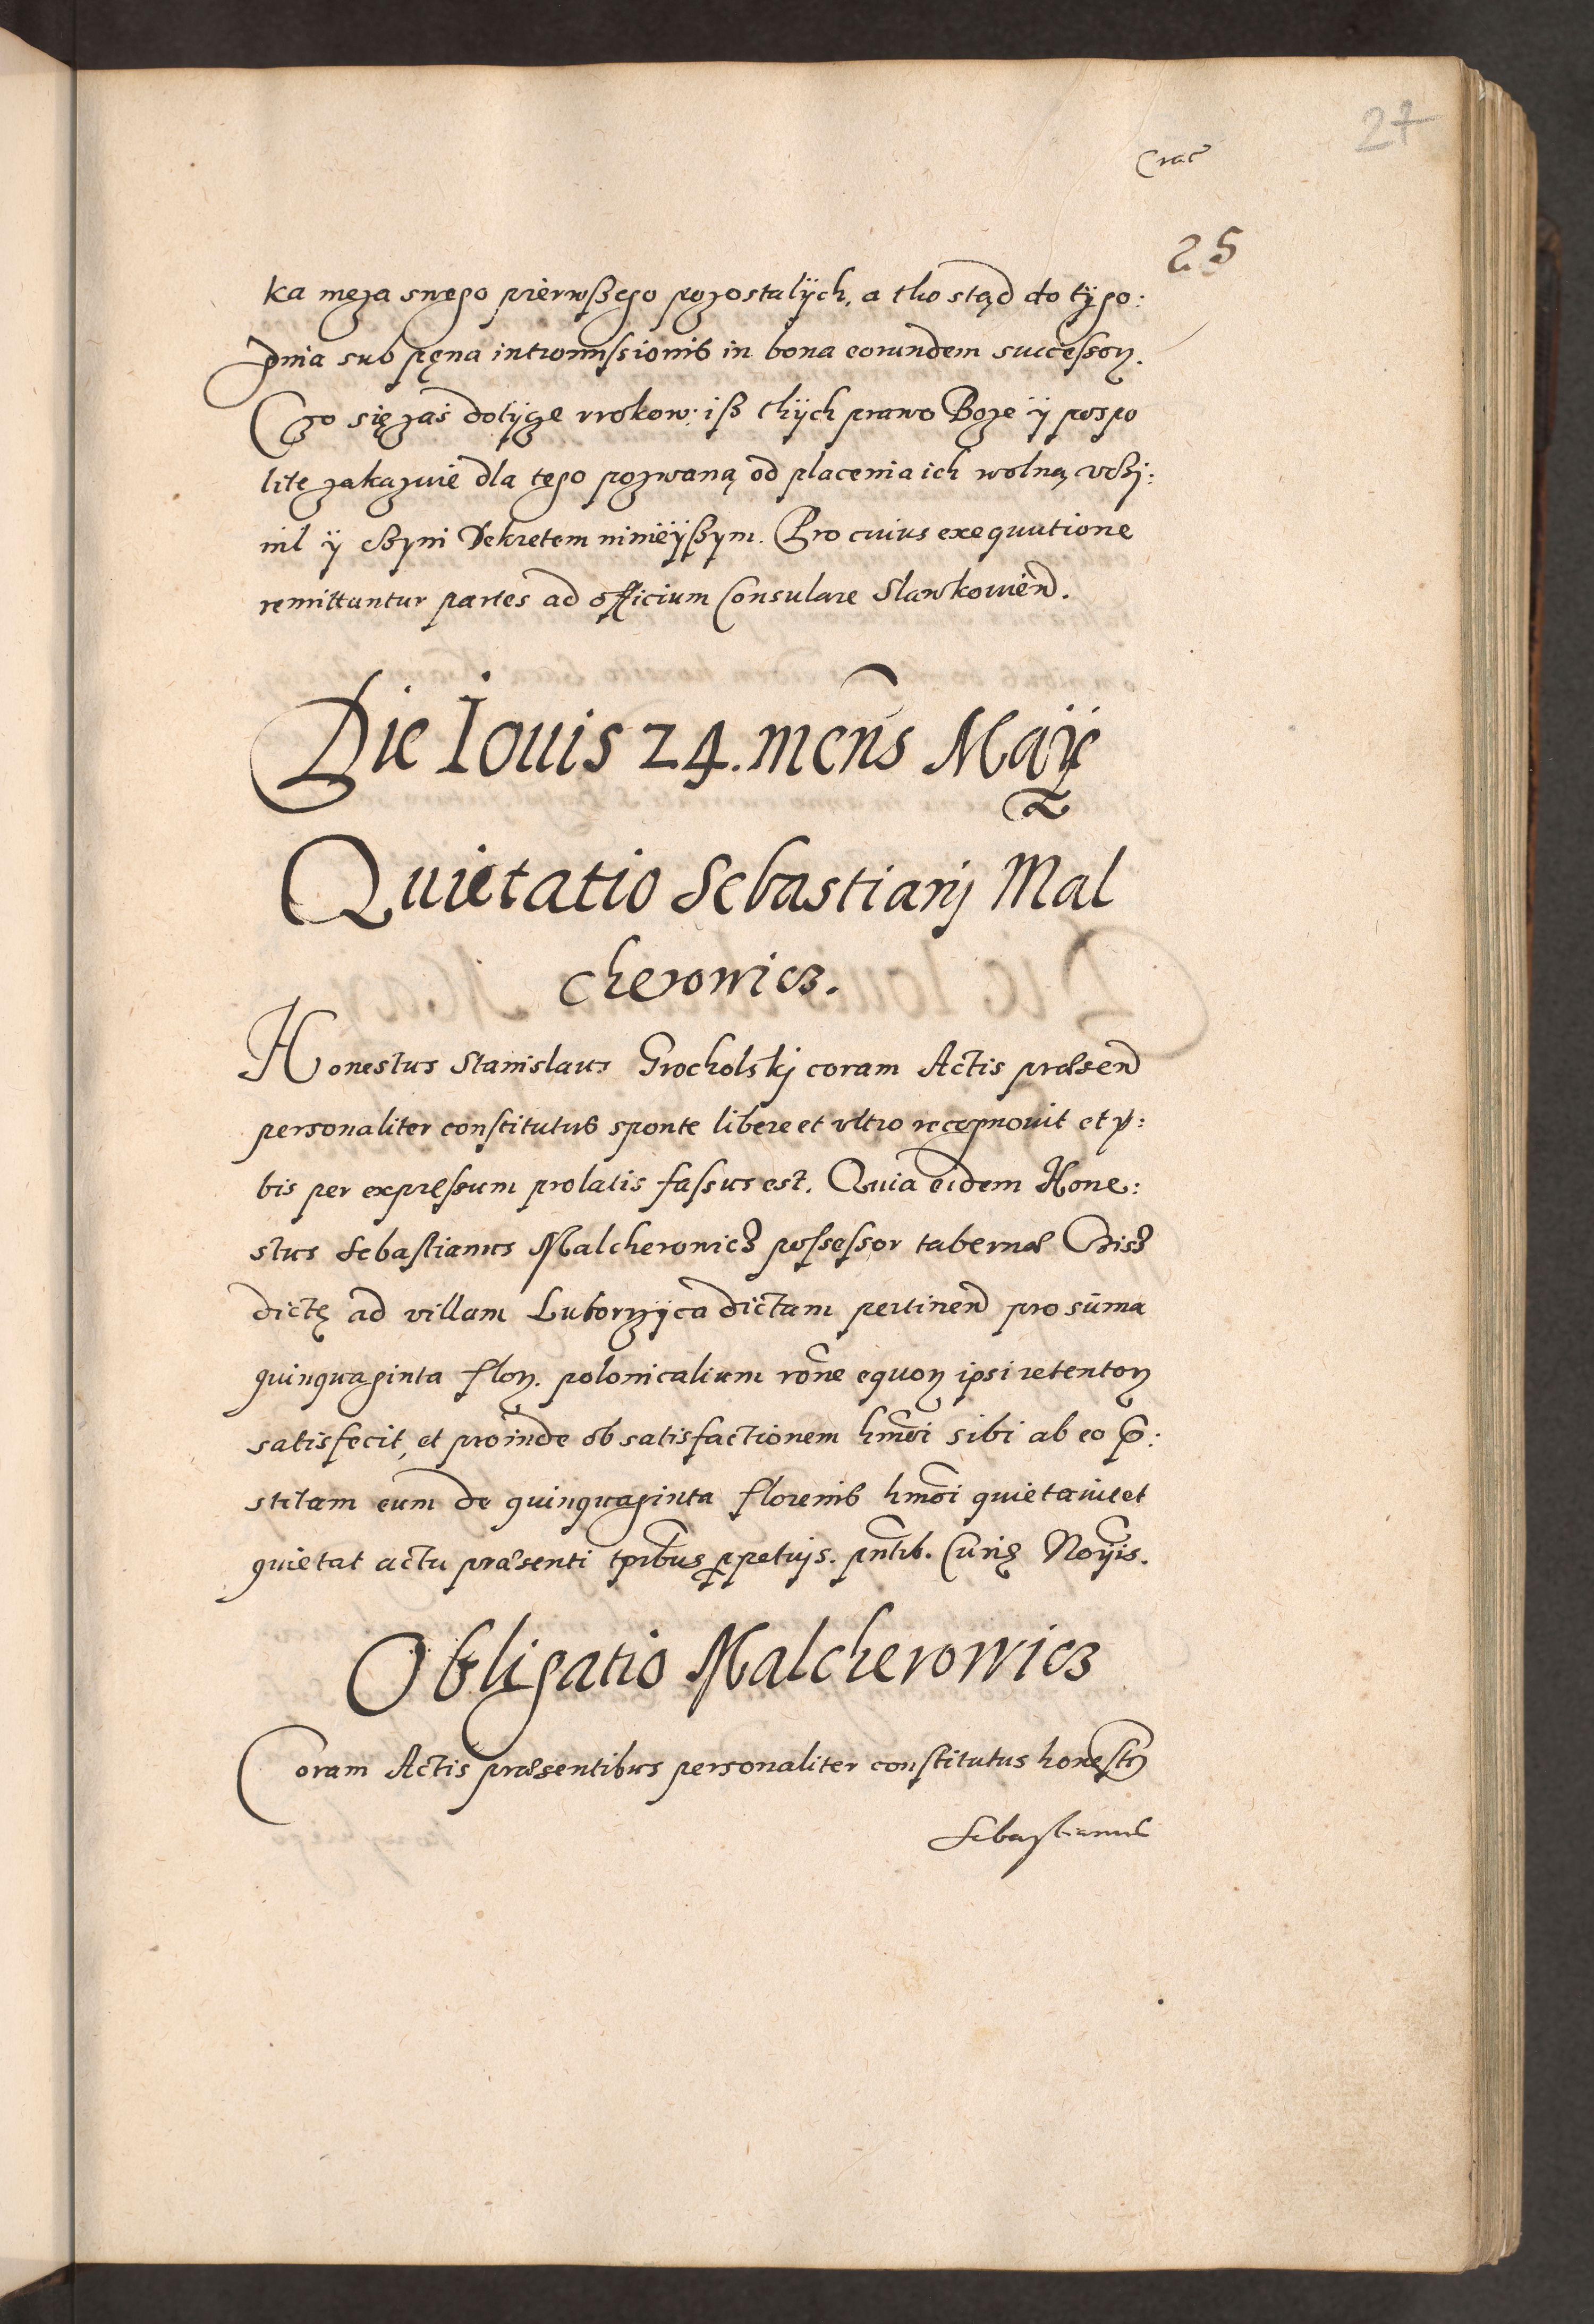 27
Crac
25
ka męza swego pierwßego pozostalÿch, a tho stąd do tÿgo:
dnia sub pęna intromissionis in bona eorundem successorꝫ.
Czo się zaś dotÿcze wrokow: iß thÿch prawo Boże ÿ pospo
lite zakazuie dla tego pozwaną od placenia ich wolną vczÿ:
nil ÿ czyni Dekretem ninieÿßym. Pro cuius exequutione
remittuntur partes ad officium Consulare Slawkowień.
Die Iouis 24. meñs Maij
Quietatio Sebastianj Mal
cherowicz.
Honestus Stanislaus Grocholskj coram Actis præsend
personaliter constitutus sponte libere et vltro recognouit et v:
bis per expressum prolatis fassus est. Quia eidem Hone:
stus Sebastianus Malcherowicz possessor tabernæ
dictę ad villam Luborzÿca dictam pertinend pro sum̃a
quinquaginta florꝫ. polonicalium rõne equorꝫ ipsi retentorꝫ
satisfecit, et proinde ob satisfactionem hm̃oi sibi ab eo p̃:
stitam eum de quinquaginta florenis hm̃oi quietauit et
quietat actu præsenti tp̃ribus ꝑpetuis. pñtib. Curię Notarÿs.
Obligatio Malcherowicz
Coram Actis præsentibus personaliter constitutus honestꝫ
Sebastianus